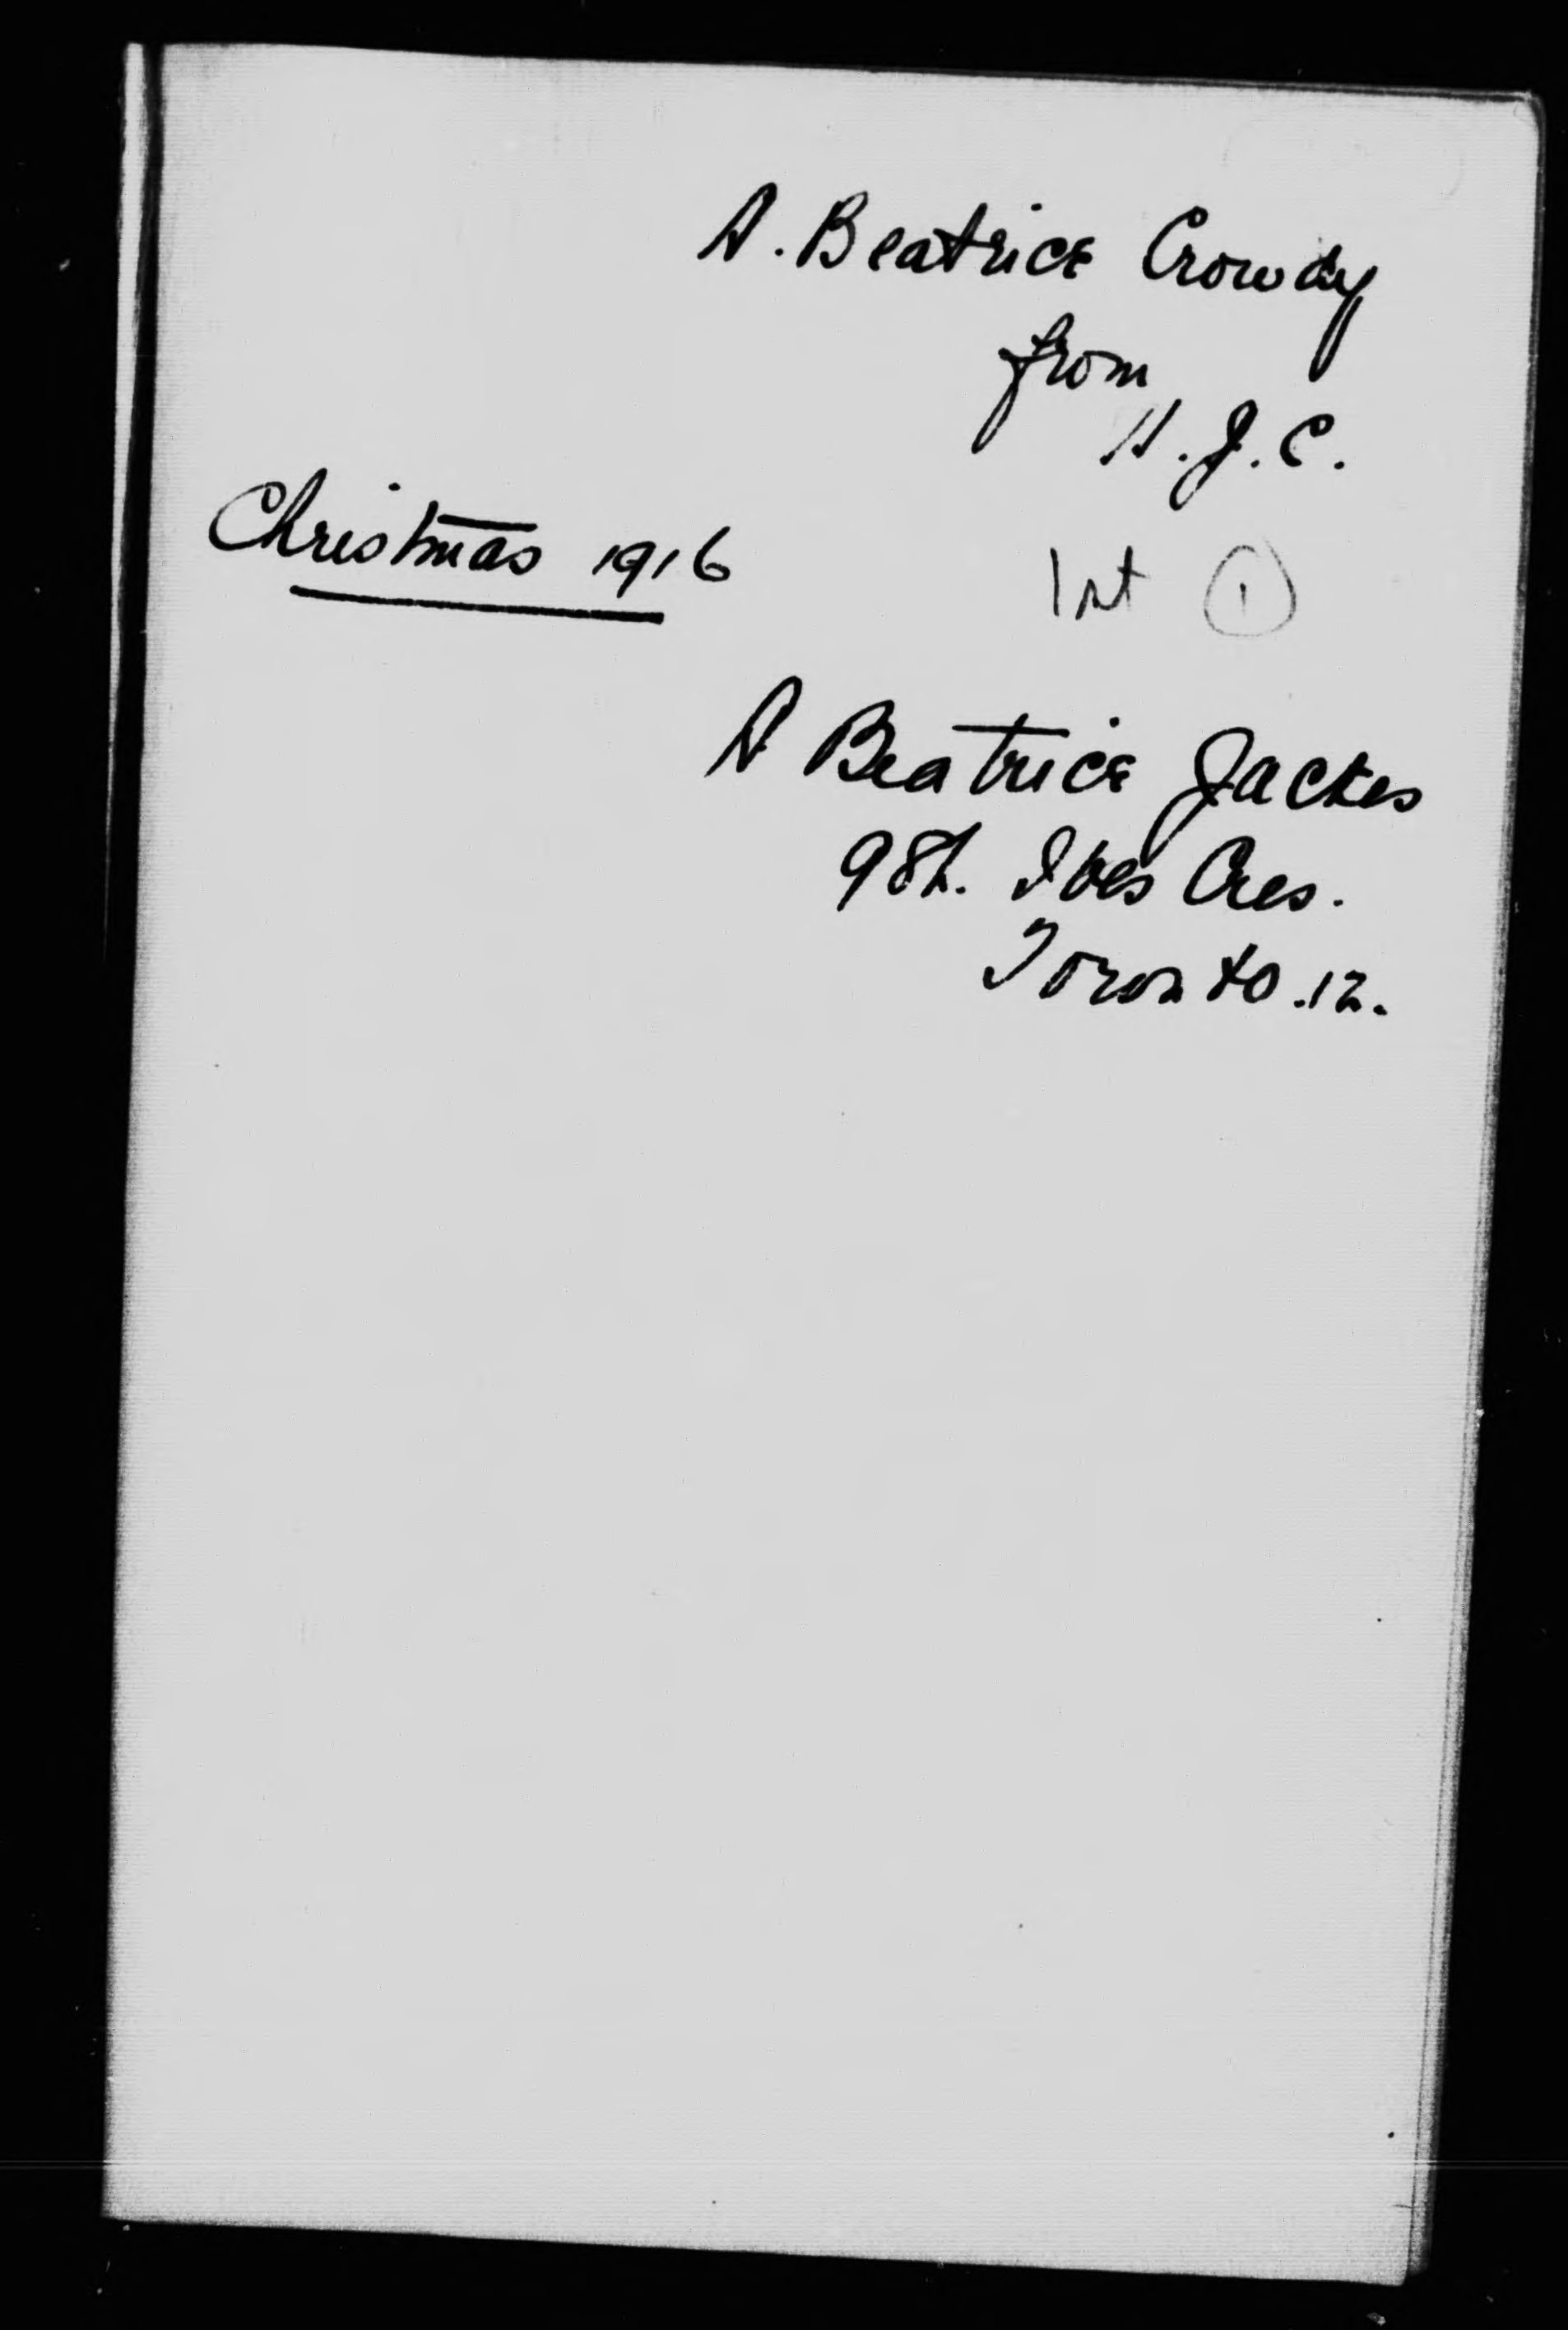 A. Beatrice Crowdy
from
H. J. C.
Christmas 1916
1st ①
A Beatrice Jackes
9 St. Ives Cres.
Toronto .12.